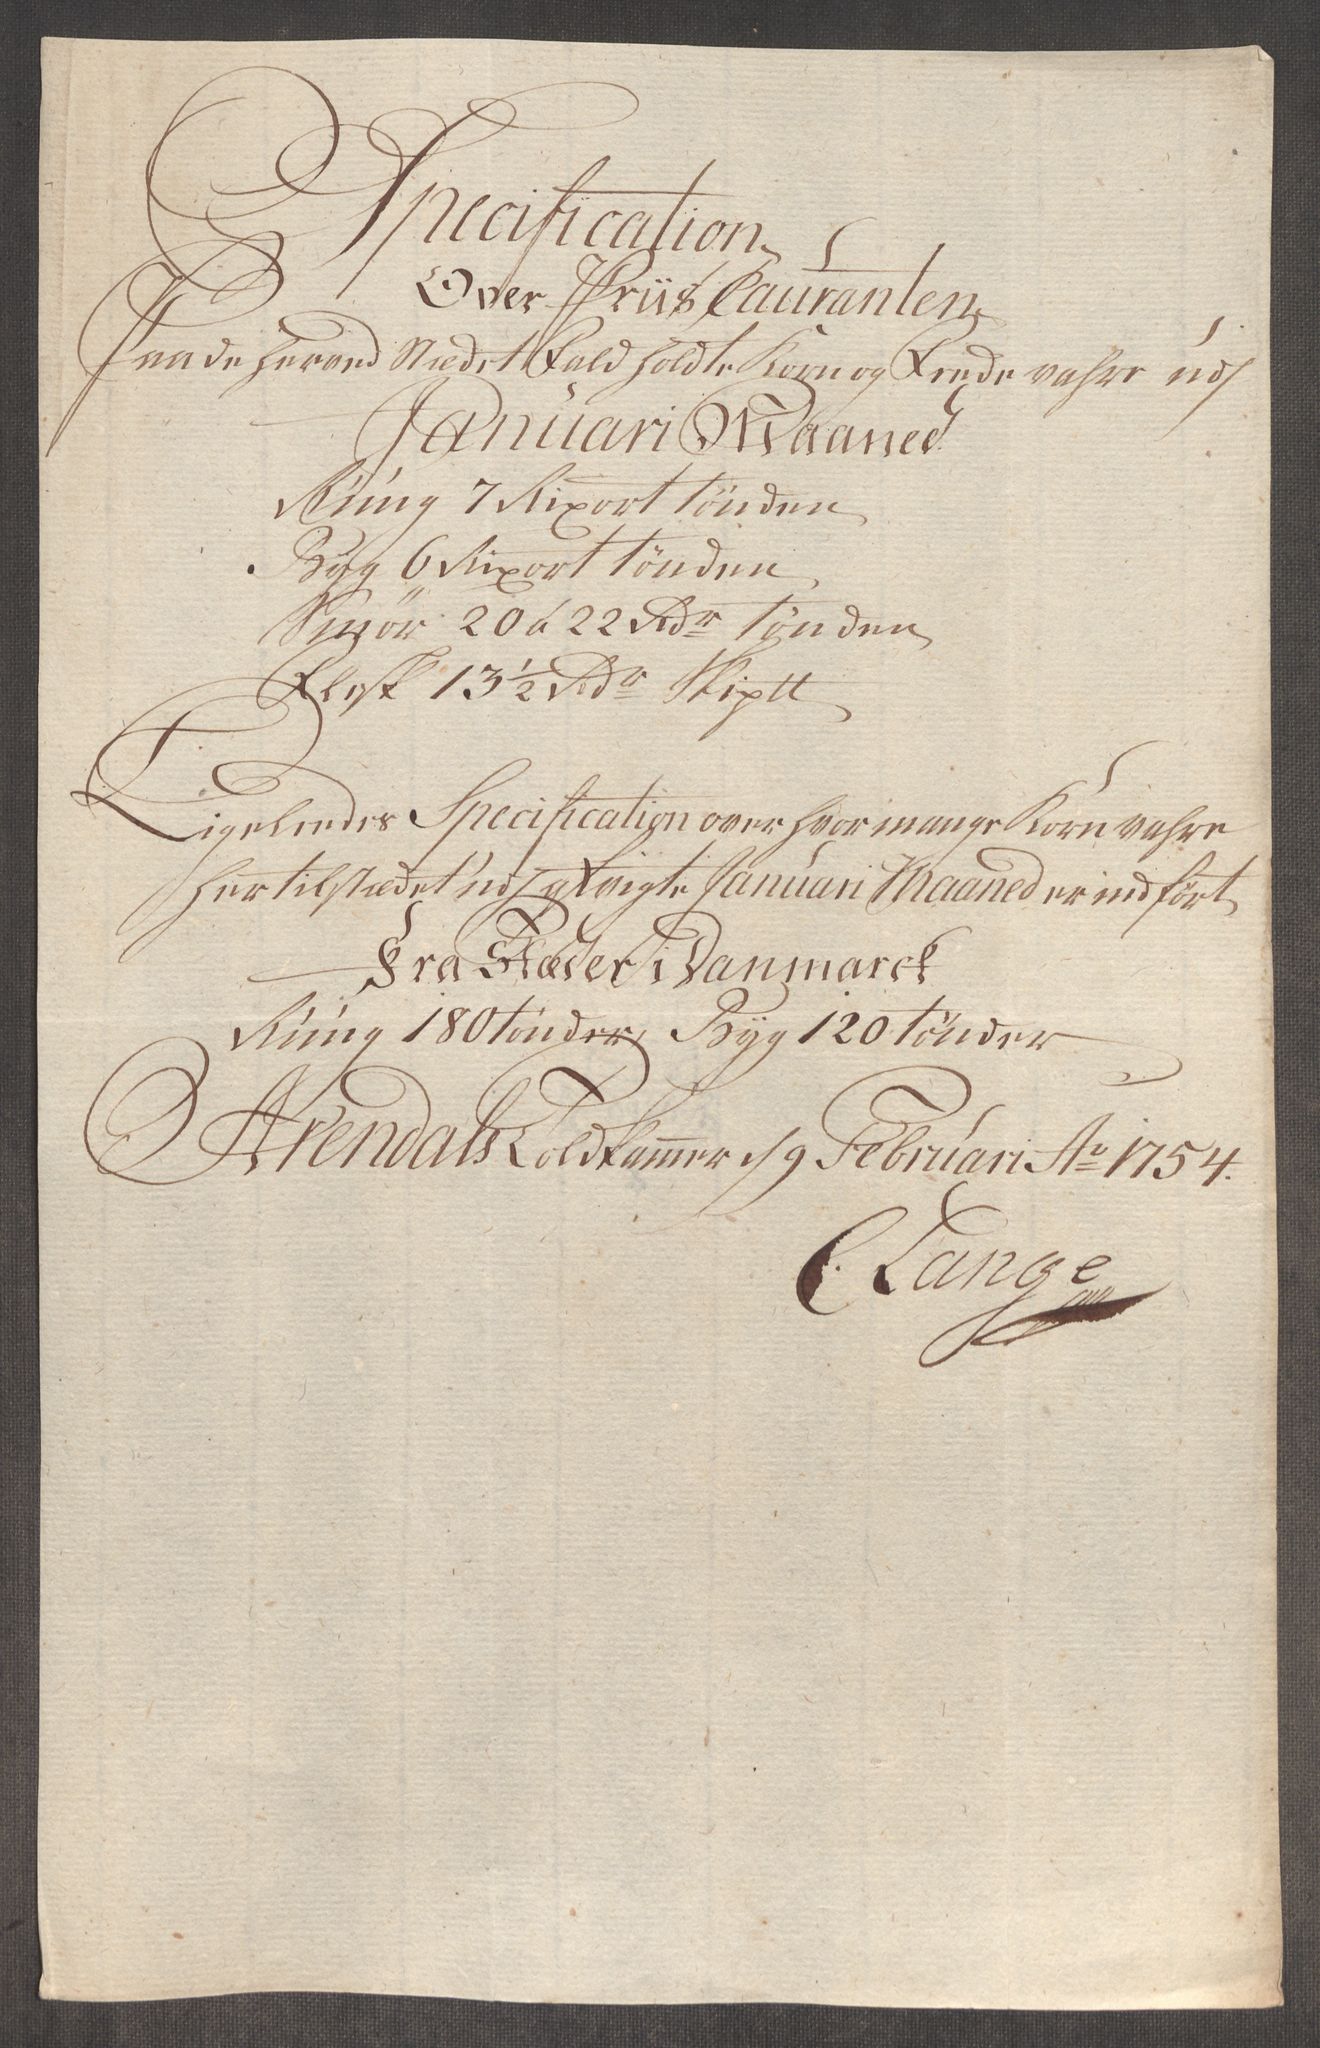 Specification
Over Priis Couranten
Paa de her ved Stædet fald holdte Korn og Fede vahre udj
Januari Maaned
Rúúg 7 Rixort tönden
Byg 6 Rixort tönden
Smör 20 a 22 Rdr tönden
Flesk 13 1/2 Rdr Skiptt
Ligeleedes Specification over hvor mange Korn vahre
her til stædet udj Januari Maaned er indfört
Fra Stæder i Danmarck
Rúúg 180 tönder, Byg 120 tönder
Arendals Toldkammer d 9 Februari Ao 1754.
C. Lange